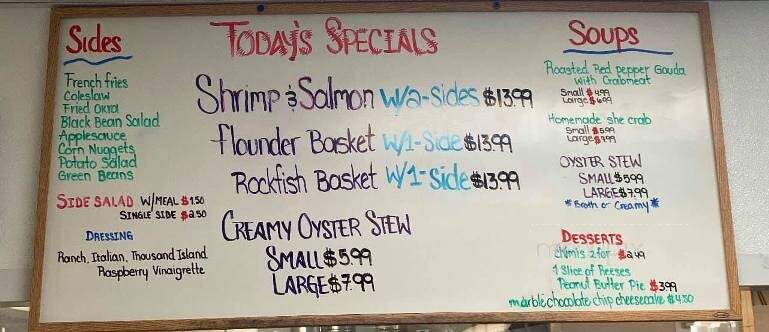 Sides
French fries
Coleslaw
Fried Okra
Black Bean Salad
Applesauce
Corn Nuggets
Potato Salad
Green Beans
SIDE SALAD W/MEAL $1.50
SINGLE SIDE $2.50
DRESSING
Ranch, Italian, Thousand Island
Raspberry Vinaigrette
TODAY'S SPECIALS
Shrimp & Salmon w/2-sides $13.99
flounder Basket w/1-Side $13.99
Rockfish Basket w/1-Side $13.99
CREAMY OYSTER STEW
SMALL $5.99
LARGE $7.99
SOUPS
Roasted Red pepper Gouda
with Crabmeat
Small $4.99
Large $6.99
Homemade she crab
Small $5.99
Large $7.99
OYSTER STEW
SMALL $5.99
LARGE $7.99
*Broth or Creamy*
DESSERTS
Chimis 2 for $2.49
1 Slice of Reeses
Peanut Butter Pie $3.99
marble chocolate chip cheesecake $4.50